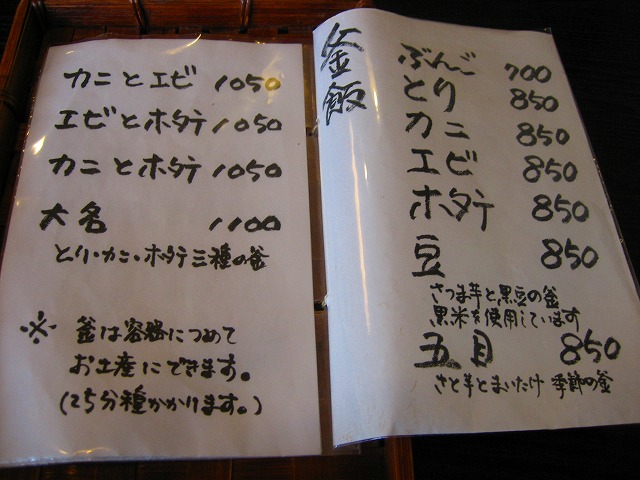 釜飯
ぶんご 700
とり 850
カニ 850
エビ 850
ホタテ 850
豆 850
さつま芋と黒豆の釜
黒米を使用しています
五目 850
さと芋とまいたけ 季節の釜
カニとエビ 1050
エビとホタテ 1050
カニとホタテ 1050
大名 1100
とり・カニ・ホタテ三種の釜
※ 釜は容器につめて
お土産にできます。
(25分程かかります。)